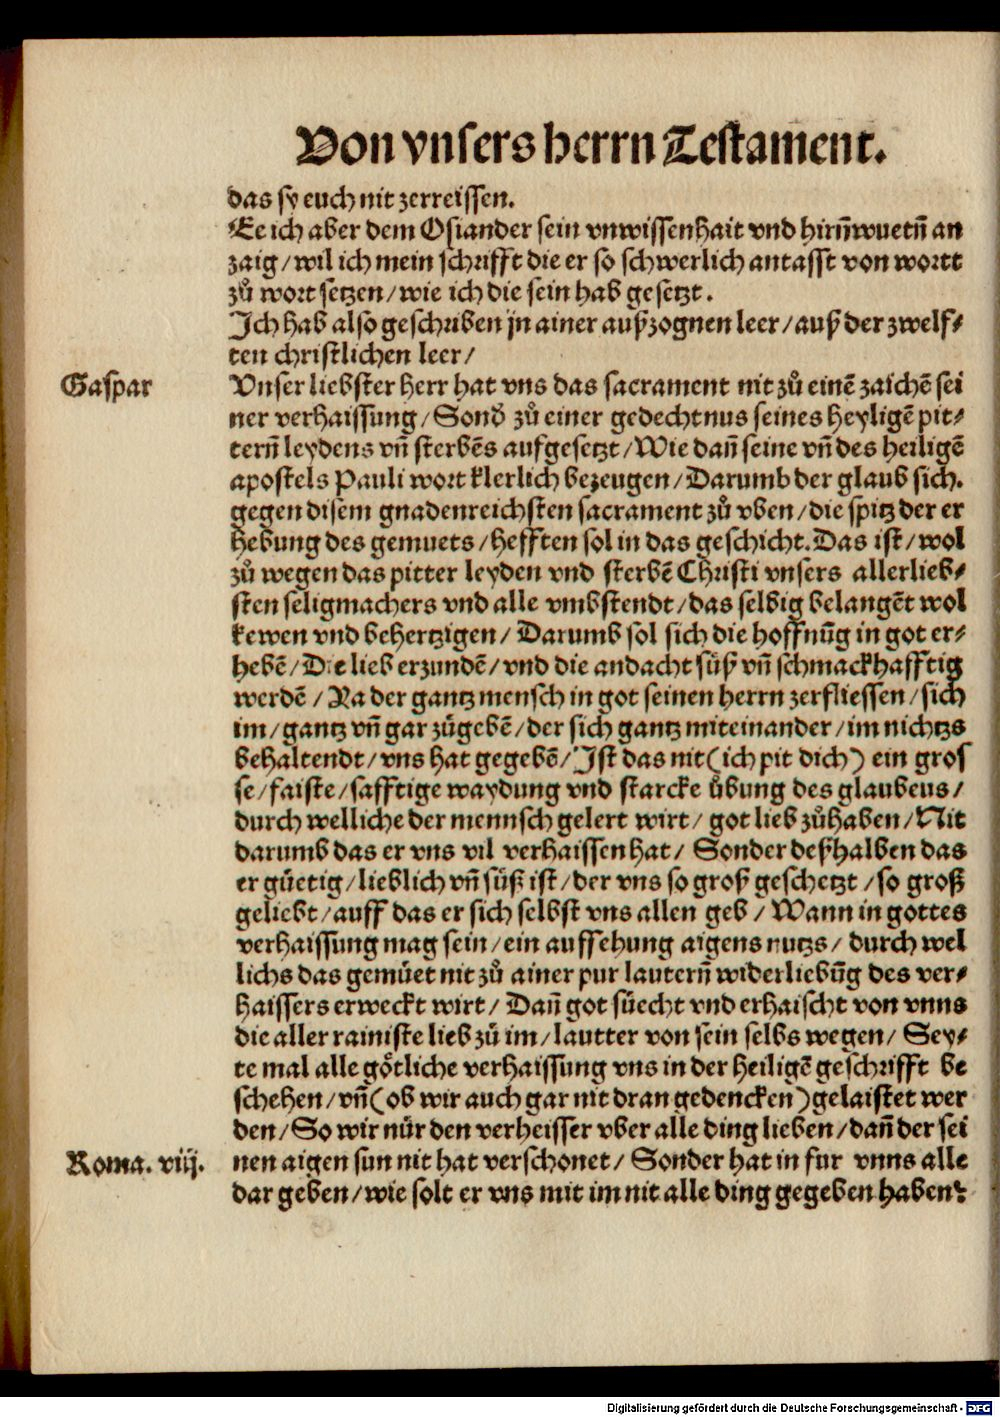 Von vnsers herrn Testament.
das sy euch nit zerreissen.
Ee ich aber dem Osiander sein vnwissenhait vnd hirñwuetñ an
zaig/wil ich mein schrifft die er so schwerlich antasst von wortt
zů wort setzen/wie ich die sein hab gesetzt.
Ich hab also geschriben jn ainer außzognen leer/auß der zwelf⸗
ten christlichen leer/
Gaspar
Vnser liebster herr hat vns das sacrament nit zů einẽ zaichẽ sei
ner verhaissung/Sond̃ zů einer gedechtnus seines heyligẽ pit⸗
terñ leydens vñ sterbẽs aufgesetzt/Wie dañ seine vñ des heiligẽ
apostels Pauli wort klerlich bezeugen/Darumb der glaub sich.
gegen disem gnadenreichsten sacrament zů vben/die spitz der er
hebung des gemuets/hefften sol in das geschicht.Das ist/wol
zů wegen das pitter leyden vnd sterbẽ Christi vnsers allerlieb⸗
sten seligmachers vnd alle vmbstendt/das selbig belangẽt wol
kewen vnd behertzigen/Darumb sol sich die hoffnũg in got er⸗
hebẽ/Die lieb erzundẽ/vnd die andacht süß vñ schmackhafftig
werdẽ/Ra der gantz mensch in got seinen herrn zerfliessen/sich
im/gantz vñ gar zůgebẽ/der sich gantz miteinander/im nichtzs
behaltendt/vns hat gegebẽ/Ist das nit(ich pit dich) ein gros
se/faiste/safftige waydung vnd starcke übung des glaubens/
durch welliche der mennsch gelert wirt/got lieb zůhaben/Nit
darumb das er vns vil verhaissen hat/Sonder deßhalben das
er güetig/lieblich vñ süß ist/der vns so groß geschetzt/so groß
geliebt/auff das er sich selbst vns allen geb/Wann in gottes
verhaissung mag sein/ein auffsehung aigens nutzs/durch wel
lichs das gemüet nit zů ainer pur lauterñ widerliebũg des ver⸗
haissers erweckt wirt/Dañ got süecht vnd erhaischt von vnns
die aller rainiste lieb zů im/lautter von sein selbs wegen/Sey⸗
te mal alle götliche verhaissung vns in der heiligẽ geschrifft be
schehen/vñ(ob wir auch gar nit dran gedencken)gelaistet wer
den/So wir nür den verheisser vber alle ding lieben/dañ der sei
Roma. viij.
nen aigen sun nit hat verschonet/Sonder hat in fur vnns alle
dar geben/wie solt er vns mit im nit alle ding gegeben haben?
Digitalisierung gefördert durch die Deutsche Forschungsgemeinschaft - DFG